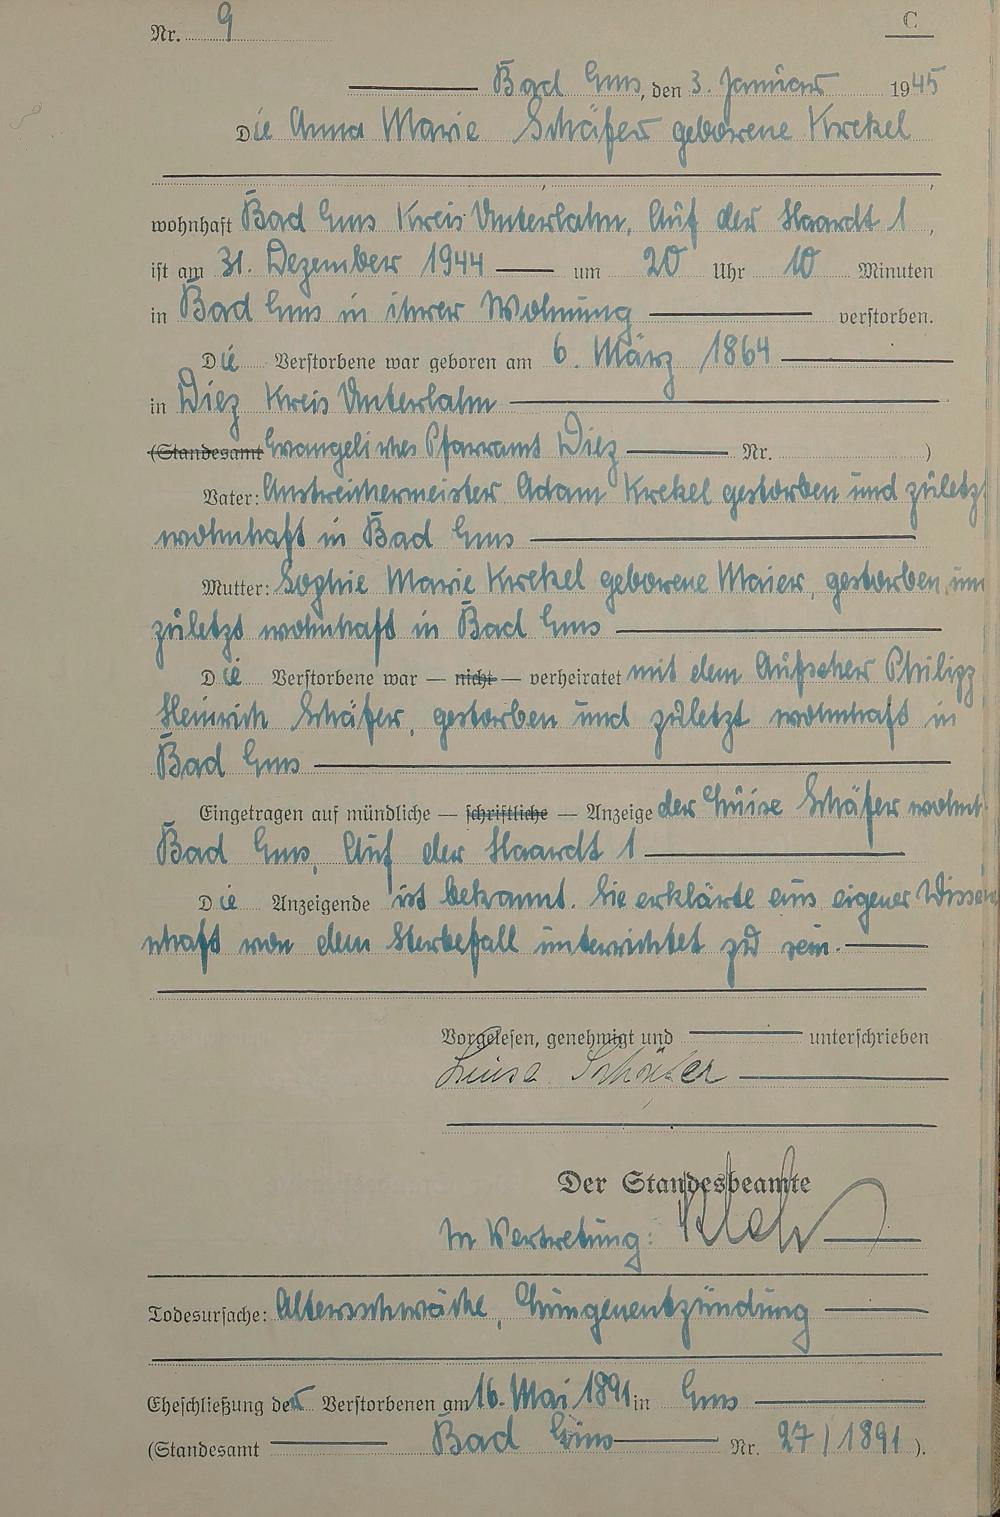 Nr. 9
C
Bad Ems, den 3. Januar 1945
Die Anna Marie Schäfer geborene Krekel
wohnhaft Bad Ems Kreis Unterlahn, Auf der Haardt 1,
ist am 31. Dezember 1944 um 20 Uhr 10 Minuten
in Bad Ems in ihrer Wohnung verstorben.
Die Verstorbene war geboren am 6. März 1864
in Diez Kreis Unterlahn
(Standesamt Evangelisches Pfarramt Diez Nr. )
Vater: Anstreichermeister Adam Krekel gestorben und zuletzt
wohnhaft in Bad Ems
Mutter: Sophie Marie Krekel geborene Maier, gestorben und
zuletzt wohnhaft in Bad Ems
Die Verstorbene war — nicht — verheiratet mit dem Aufseher Philipp
Heinrich Schäfer, gestorben und zuletzt wohnhaft in
Bad Ems
Eingetragen auf mündliche — schriftliche — Anzeige der Luise Schäfer wohnt
Bad Ems, Auf der Haardt 1
Die Anzeigende ist bekannt. Sie erklärte aus eigener Wissen
schaft von dem Sterbefall unterrichtet zu sein.
Vorgelesen, genehmigt und unterschrieben
Luise Schäfer
Der Standesbeamte
In Vertretung:
Todesursache: Altersschwäche, Lungenentzündung
Eheschließung der Verstorbenen am 16. Mai 1891 in Ems
(Standesamt Bad Ems Nr. 27/1891).